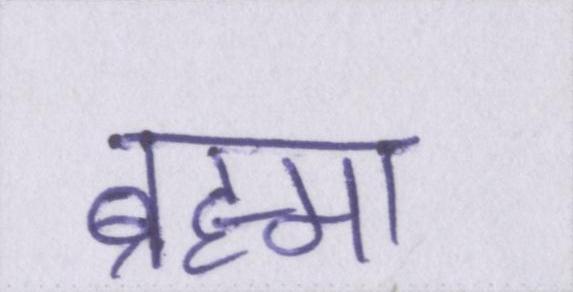 ब्रह्मा